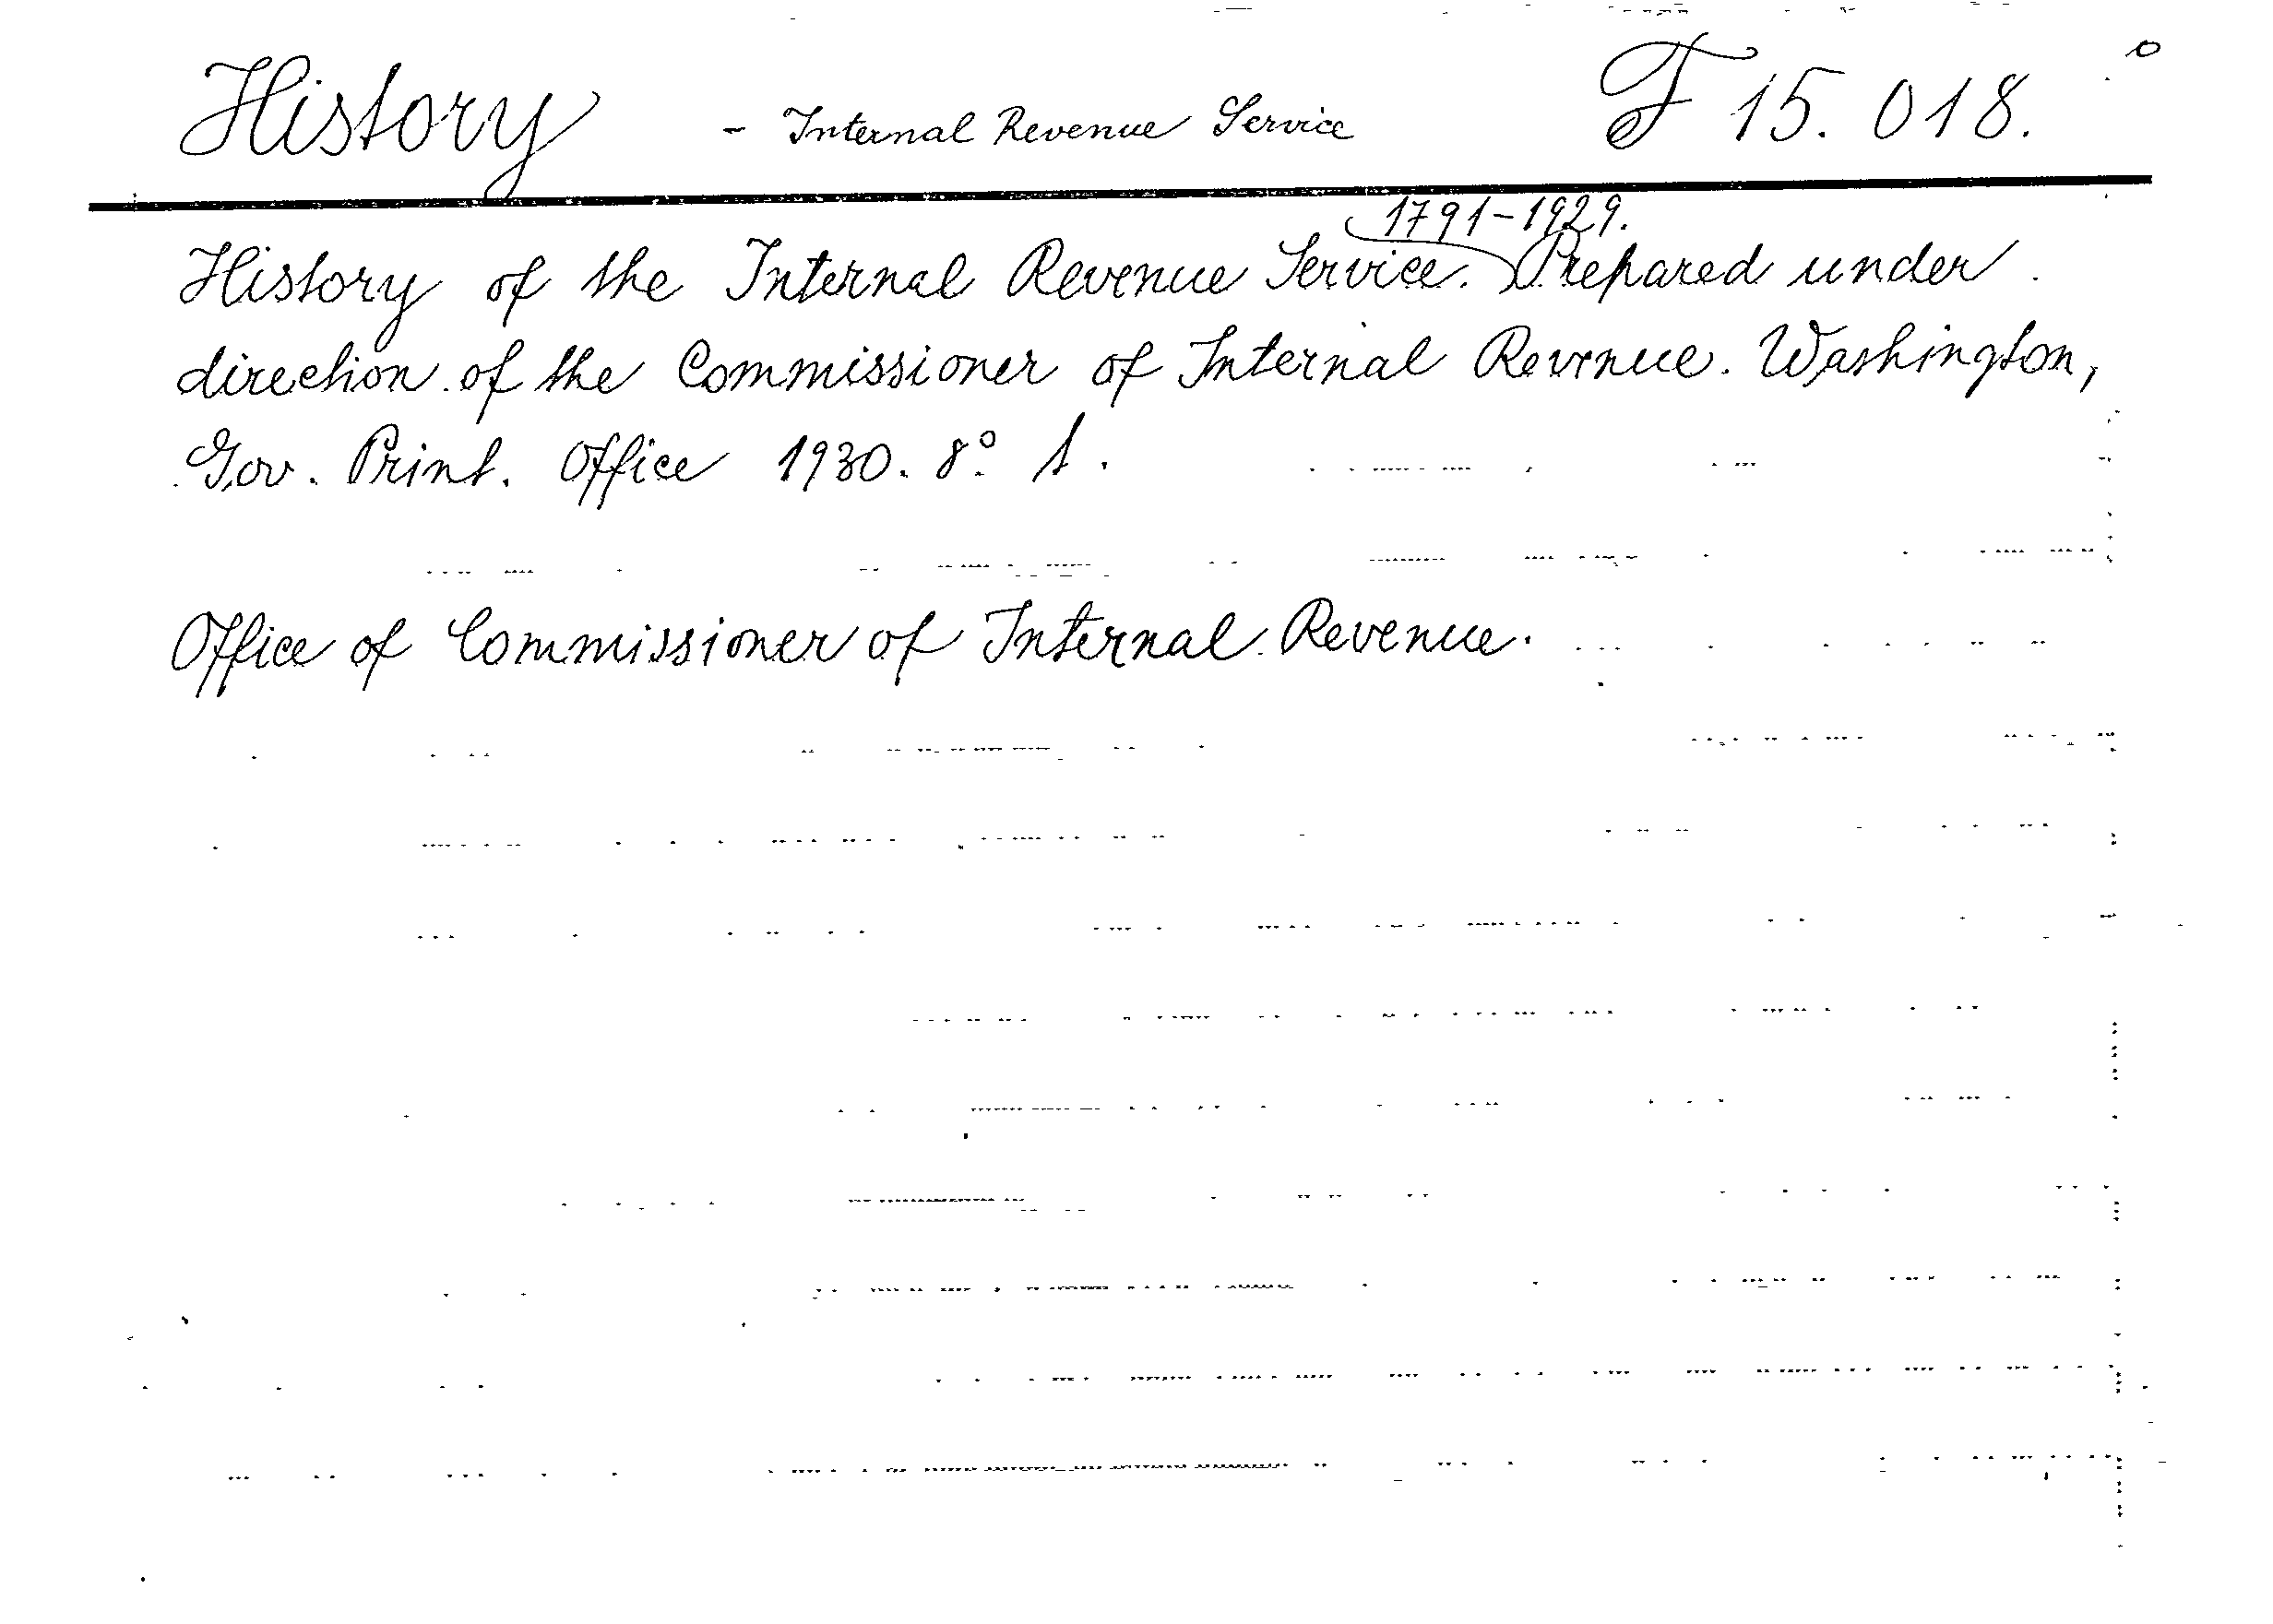 History - Internal Revenue Service F 15.018. o
1791-1929.
History of the Internal Revenue Service. Prepared under
direction of the Commissioner of Internal Revenue. Washington,
Gov. Print. Office 1930. 8° 1.
Office of Commissioner of Internal Revenue.